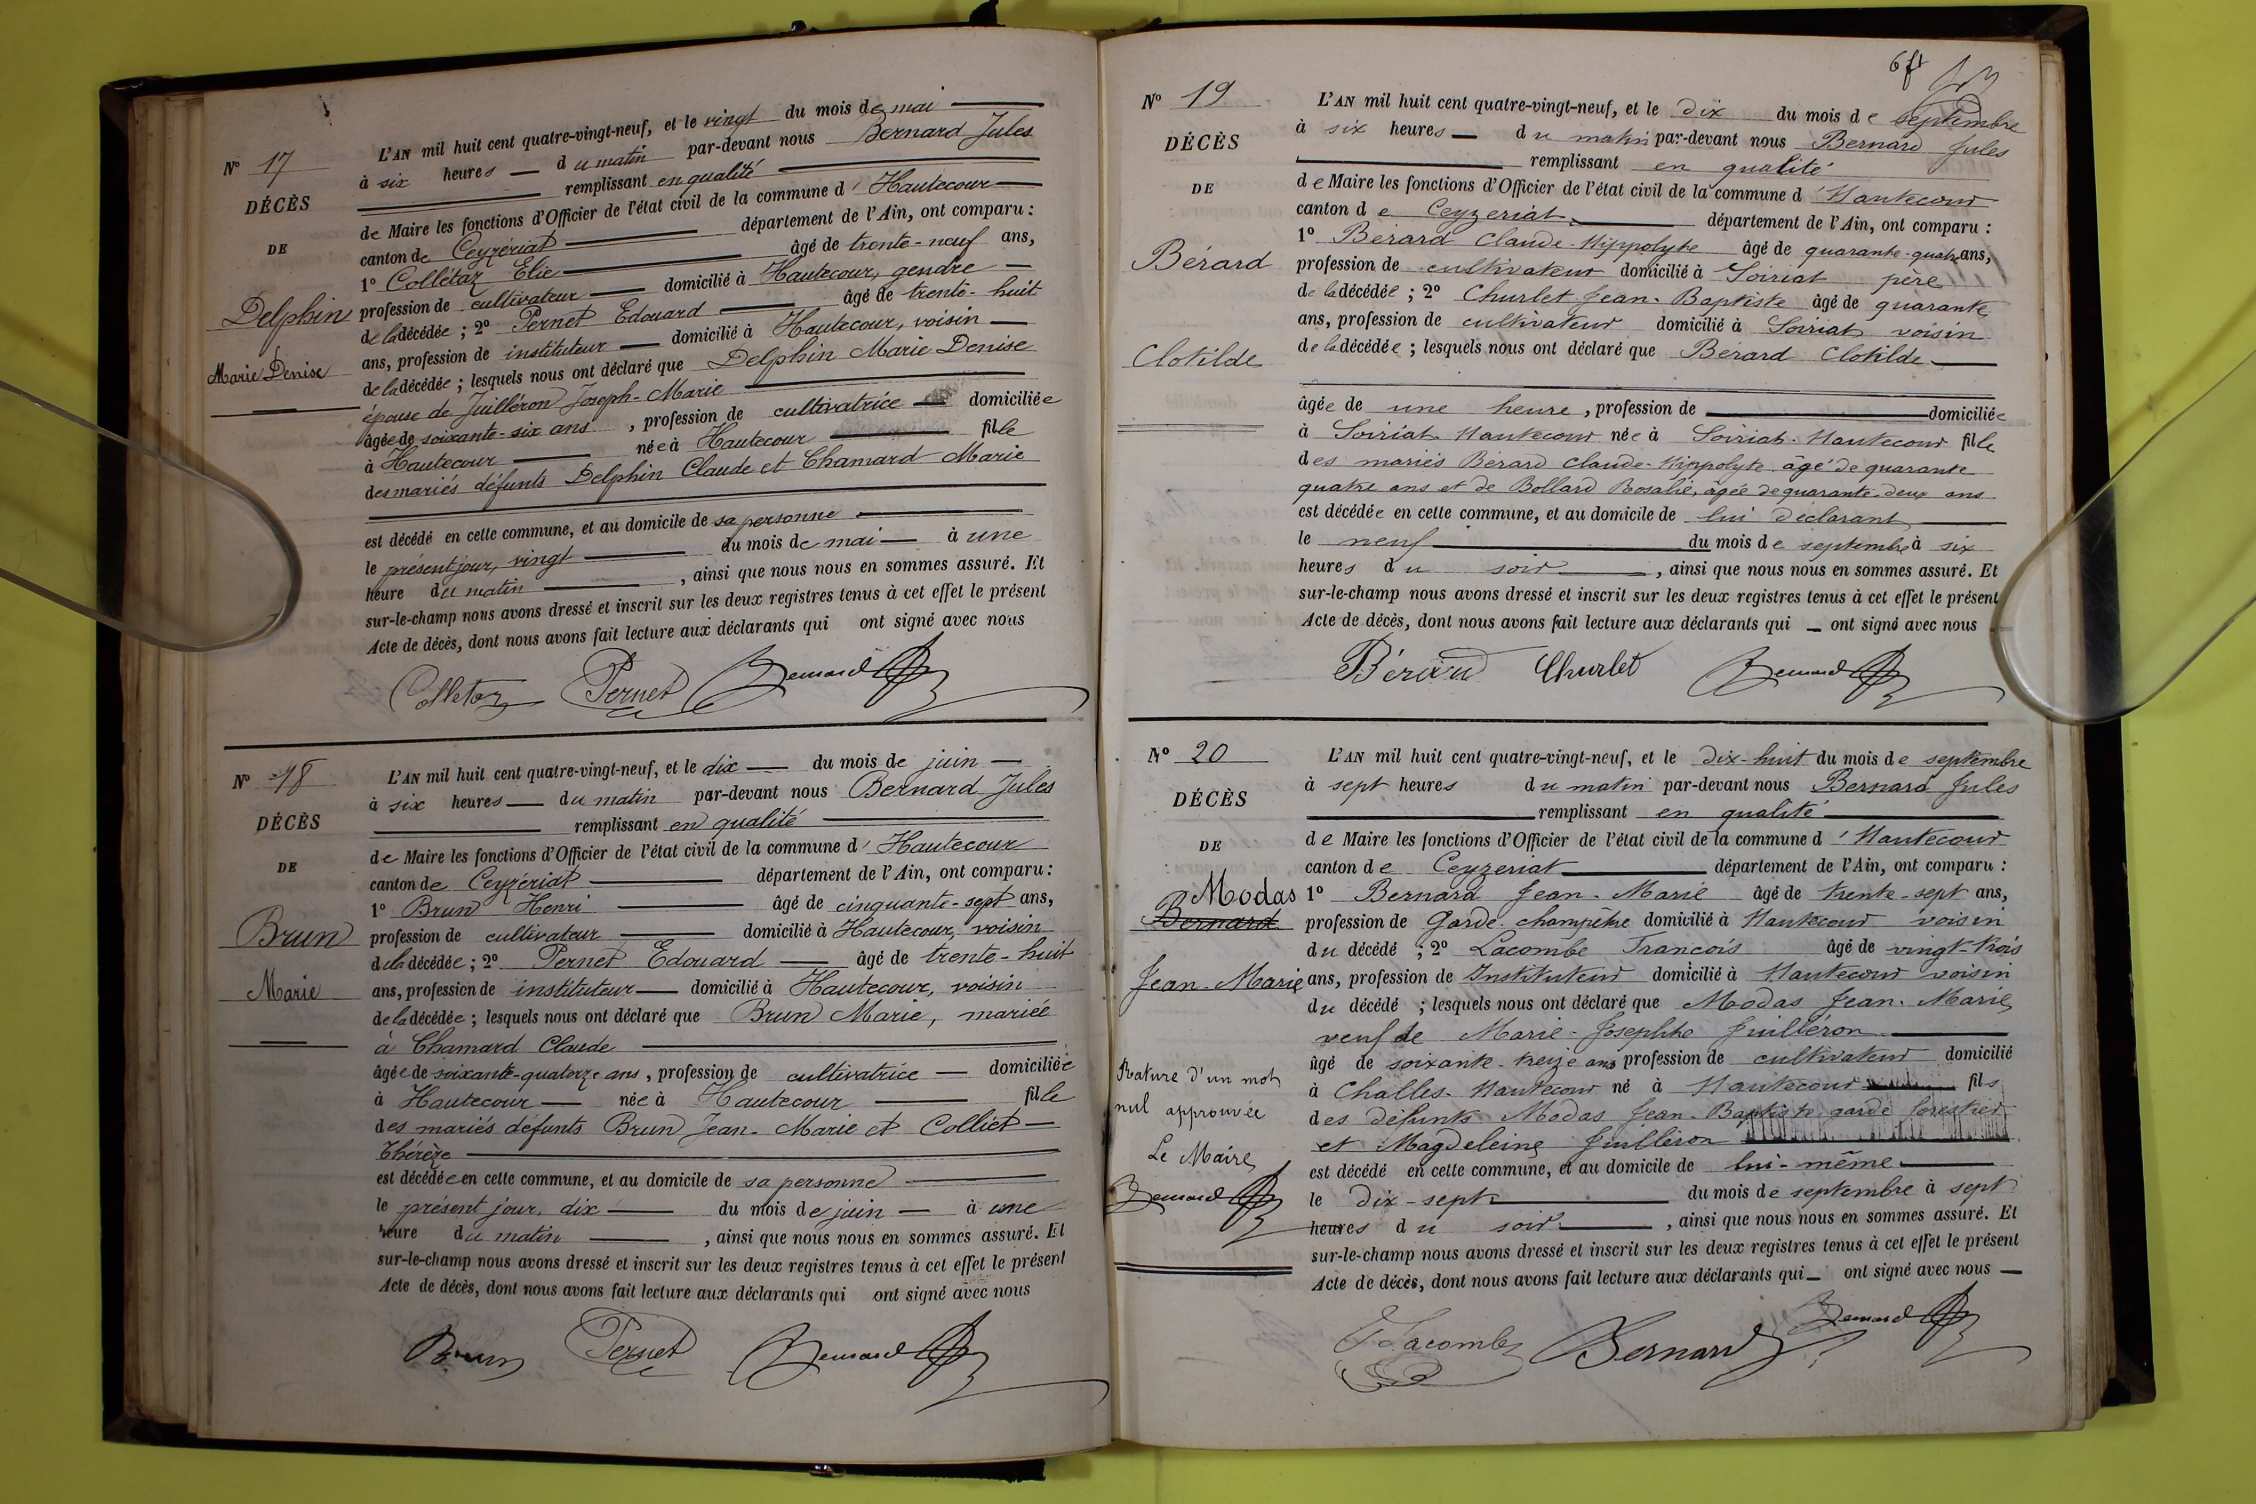 N° 17
DÉCÈS
DE
Delphin
Marie Denise
L'AN mil huit cent quatre-vingt-neuf, et le vingt du mois de mai
à six heures du matin par-devant nous Bernard Jules
remplissant en qualité
de Maire les fonctions d'Officier de l'état civil de la commune d'Hautecour
canton de Ceyzériat département de l'Ain, ont comparu :
1° Collétaz Elie âgé de trente-neuf ans,
profession de cultivateur domicilié à Hautecour, gendre
de la décédée ; 2° Pernet Edouard âgé de trente-huit
ans, profession de instituteur domicilié à Hautecour, voisin
de la décédée ; lesquels nous ont déclaré que Delphin Marie Denise
épouse de Juilléron Joseph-Marie
âgée de soixante-six ans, profession de cultivatrice domiciliée
à Hautecour née à Hautecour fille
des mariés défunts Delphin Claude et Chamard Marie
est décédé en cette commune, et au domicile de sa personne
le présent jour, vingt du mois de mai à une
heure du matin, ainsi que nous nous en sommes assuré. Et
sur-le-champ nous avons dressé et inscrit sur les deux registres tenus à cet effet le présent
Acte de décès, dont nous avons fait lecture aux déclarants qui ont signé avec nous
Colletaz Pernet Bernard
N° 18
DÉCÈS
DE
Brun
Marie
L'AN mil huit cent quatre-vingt-neuf, et le dix du mois de juin
à six heures du matin par-devant nous Bernard Jules
remplissant en qualité
de Maire les fonctions d'Officier de l'état civil de la commune d'Hautecour
canton de Ceyzériat département de l'Ain, ont comparu :
1° Brun Henri âgé de cinquante-sept ans,
profession de cultivateur domicilié à Hautecour, voisin
de la décédée ; 2° Pernet Edouard âgé de trente-huit
ans, profession de instituteur domicilié à Hautecour, voisin
de la décédée ; lesquels nous ont déclaré que Brun Marie, mariée
à Chamard Claude
âgée de soixante-quatorze ans, profession de cultivatrice domiciliée
à Hautecour née à Hautecour fille
des mariés défunts Brun Jean-Marie et Colliet
Thérèze
est décédée en cette commune, et au domicile de sa personne
le présent jour, dix du mois de juin à une
heure du matin, ainsi que nous nous en sommes assuré. Et
sur-le-champ nous avons dressé et inscrit sur les deux registres tenus à cet effet le présent
Acte de décès, dont nous avons fait lecture aux déclarants qui ont signé avec nous
Brun Pernet Bernard
N° 19
DÉCÈS
DE
Bérard
Clotilde
L'AN mil huit cent quatre-vingt-neuf, et le dix du mois de septembre
à six heures du matin par-devant nous Bernard Jules
remplissant en qualité
de Maire les fonctions d'Officier de l'état civil de la commune d'Hautecour
canton de Ceyzeriat département de l'Ain, ont comparu :
1° Bérard Claude-Hippolyte âgé de quarante-quatre ans,
profession de cultivateur domicilié à Soiriat père
de la décédée ; 2° Churlet Jean-Baptiste âgé de quarante
ans, profession de cultivateur domicilié à Soiriat voisin
de la décédée ; lesquels nous ont déclaré que Bérard Clotilde
âgée de une heure, profession de domiciliée
à Soiriat-Hautecour née à Soiriat-Hautecour fille
des mariés Bérard Claude-Hippolyte âgé de quarante
quatre ans et de Bollard Rosalie, âgée de quarante-deux ans
est décédée en cette commune, et au domicile de lui déclarant
le neuf du mois de septembre à six
heures du soir, ainsi que nous nous en sommes assuré. Et
sur-le-champ nous avons dressé et inscrit sur les deux registres tenus à cet effet le présent
Acte de décès, dont nous avons fait lecture aux déclarants qui ont signé avec nous
Bérard Churlet Bernard
N° 20
DÉCÈS
DE
Modas
Bernard
Jean-Marie
Rature d'un mot
nul approuvée
Le Maire
Bernard
L'AN mil huit cent quatre-vingt-neuf, et le dix-huit du mois de septembre
à sept heures du matin par-devant nous Bernard Jules
remplissant en qualité
de Maire les fonctions d'Officier de l'état civil de la commune d'Hautecour
canton de Ceyzeriat département de l'Ain, ont comparu :
1° Bernard Jean-Marie âgé de trente-sept ans,
profession de Garde-champêtre domicilié à Hautecour voisin
du décédé ; 2° Lacombe François âgé de vingt-trois
ans, profession de Instituteur domicilié à Hautecour voisin
du décédé ; lesquels nous ont déclaré que Modas Jean-Marie
veuf de Marie-Josephte Juilléron
âgé de soixante-treize ans profession de cultivateur domicilié
à Challes-Hautecour né à Hautecour fils
des défunts Modas Jean-Baptiste garde forestier
et Magdeleine Juilléron
est décédé en cette commune, et au domicile de lui-même
le dix-sept du mois de septembre à sept
heures du soir, ainsi que nous nous en sommes assuré. Et
sur-le-champ nous avons dressé et inscrit sur les deux registres tenus à cet effet le présent
Acte de décès, dont nous avons fait lecture aux déclarants qui ont signé avec nous
F Lacombe Bernard Bernard